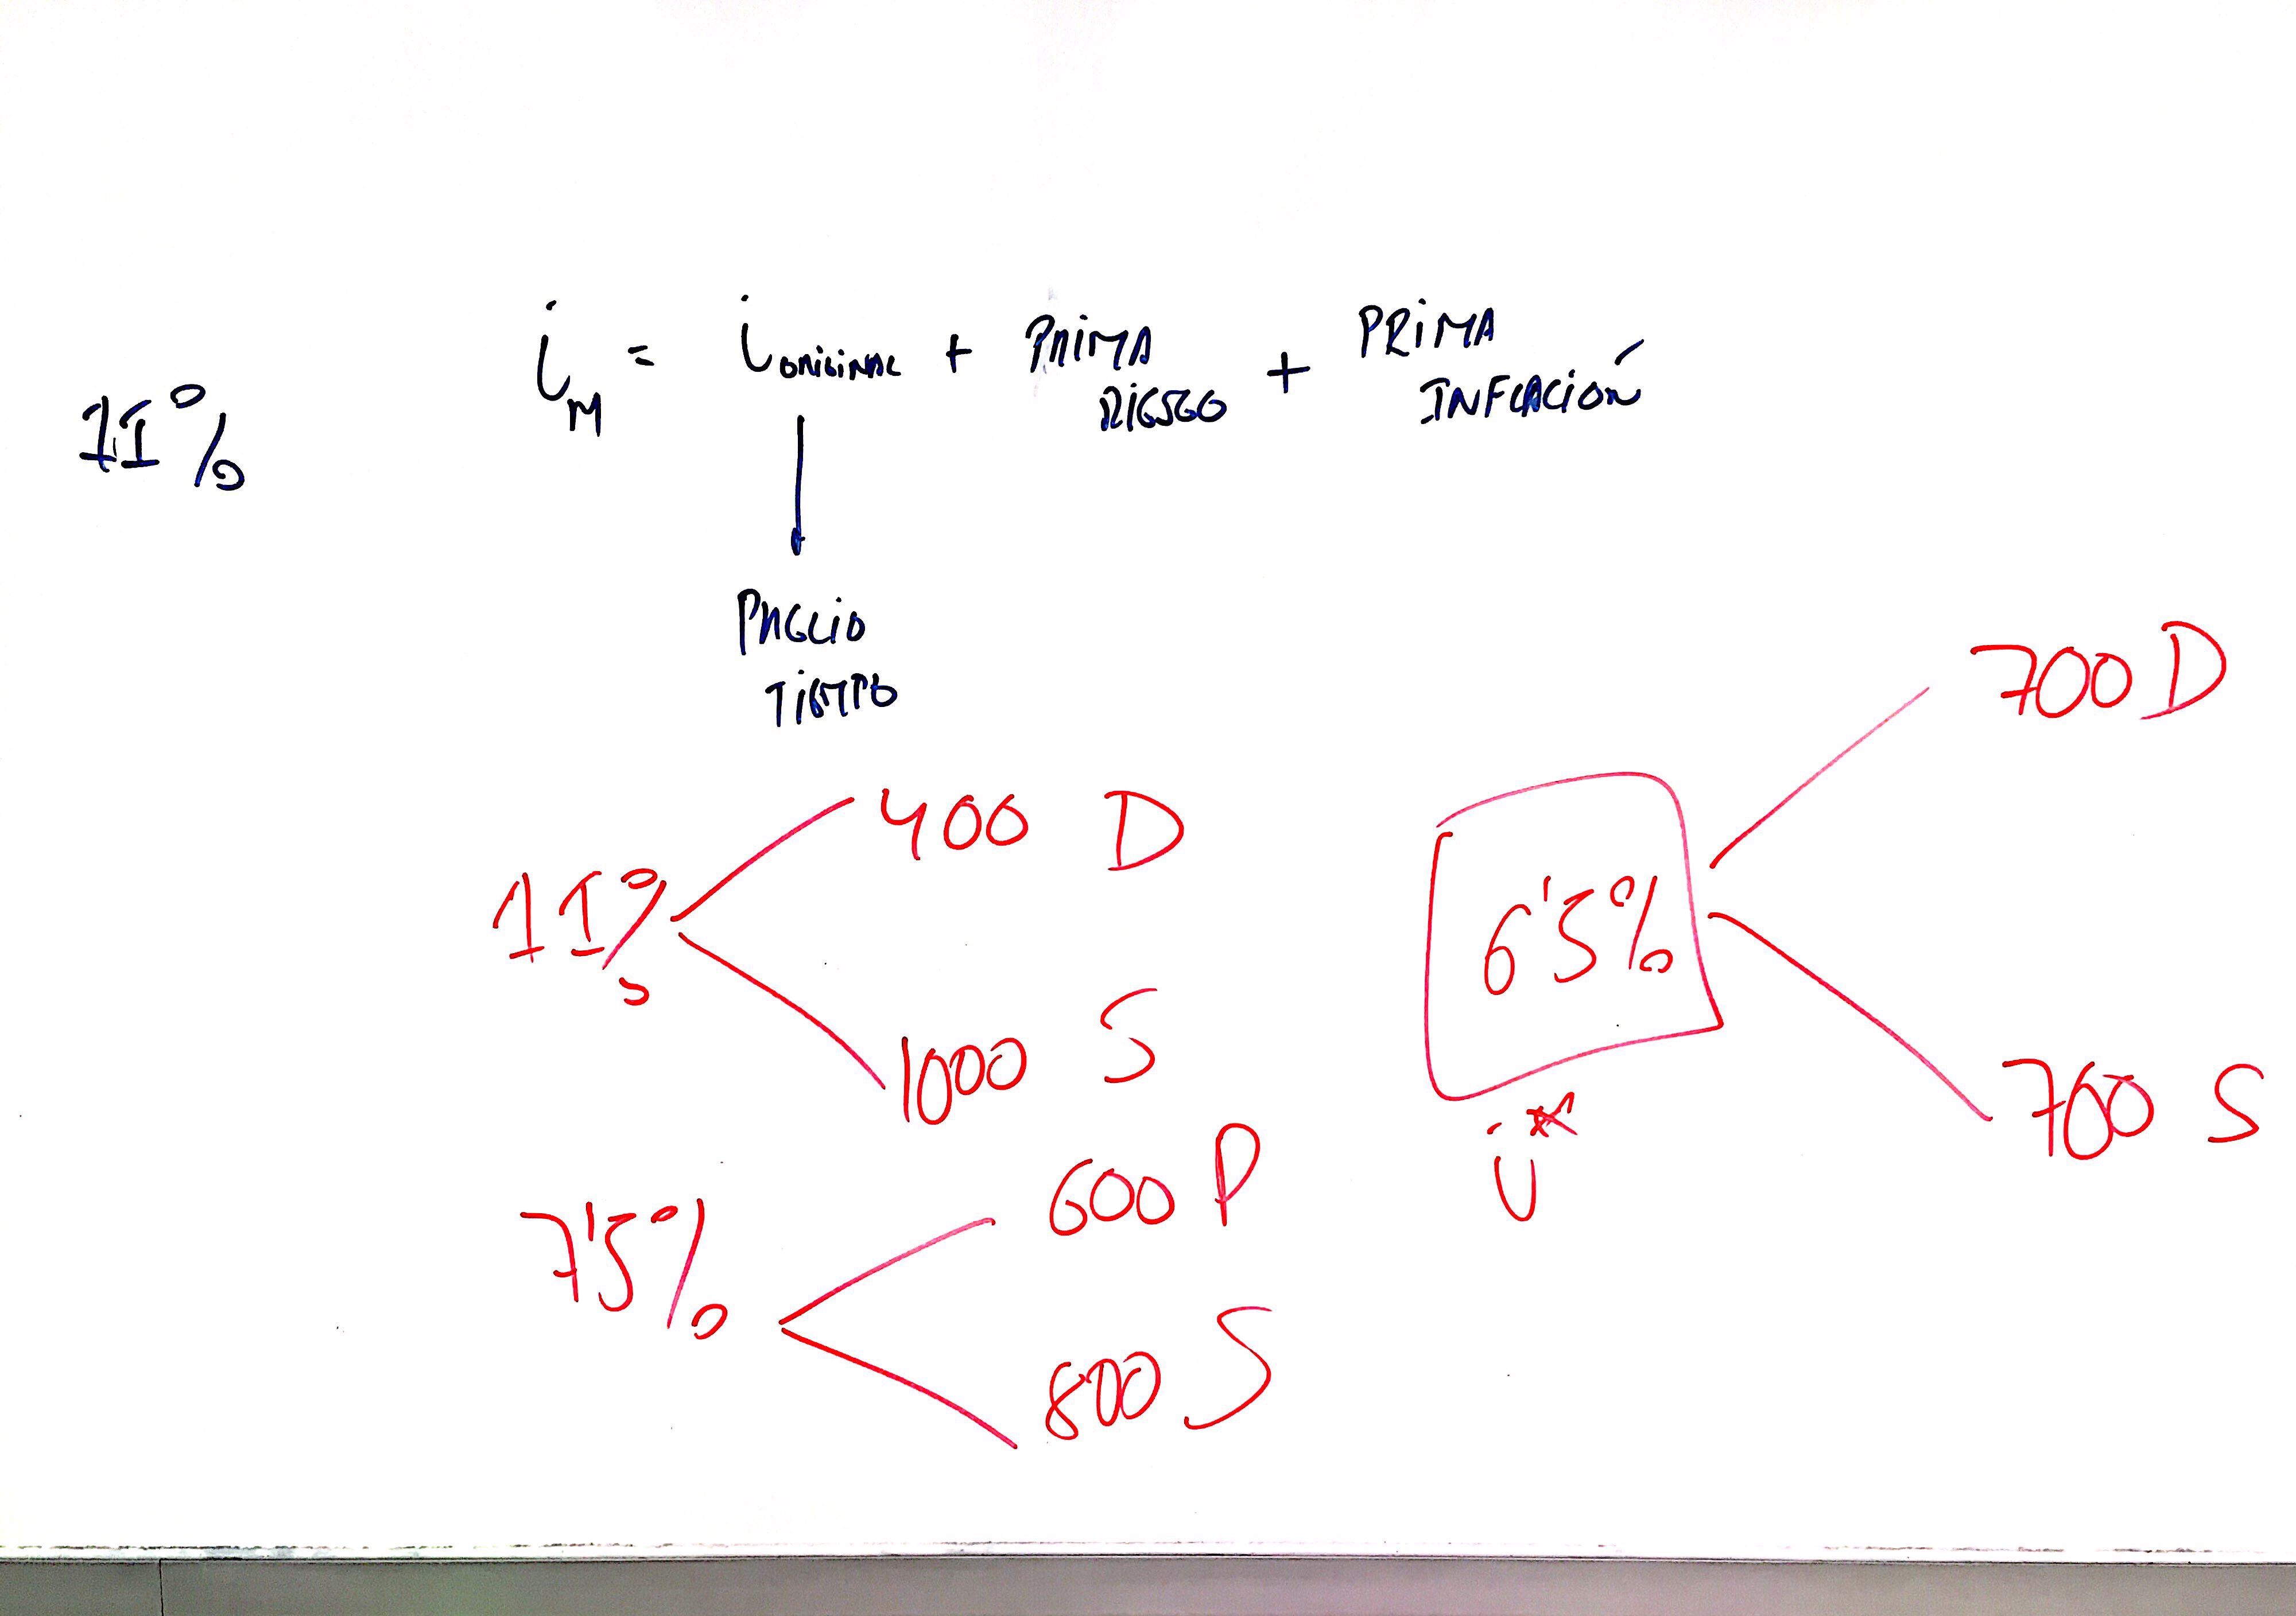 11%
i_M = i ORIGINAL + PRIMA RIESGO + PRIMA INFLACIÓN
PRECIO
TIEMPO
11%
400 D
1000 S
7'5%
600 P
800 S
6'5%
i*
700 D
700 S